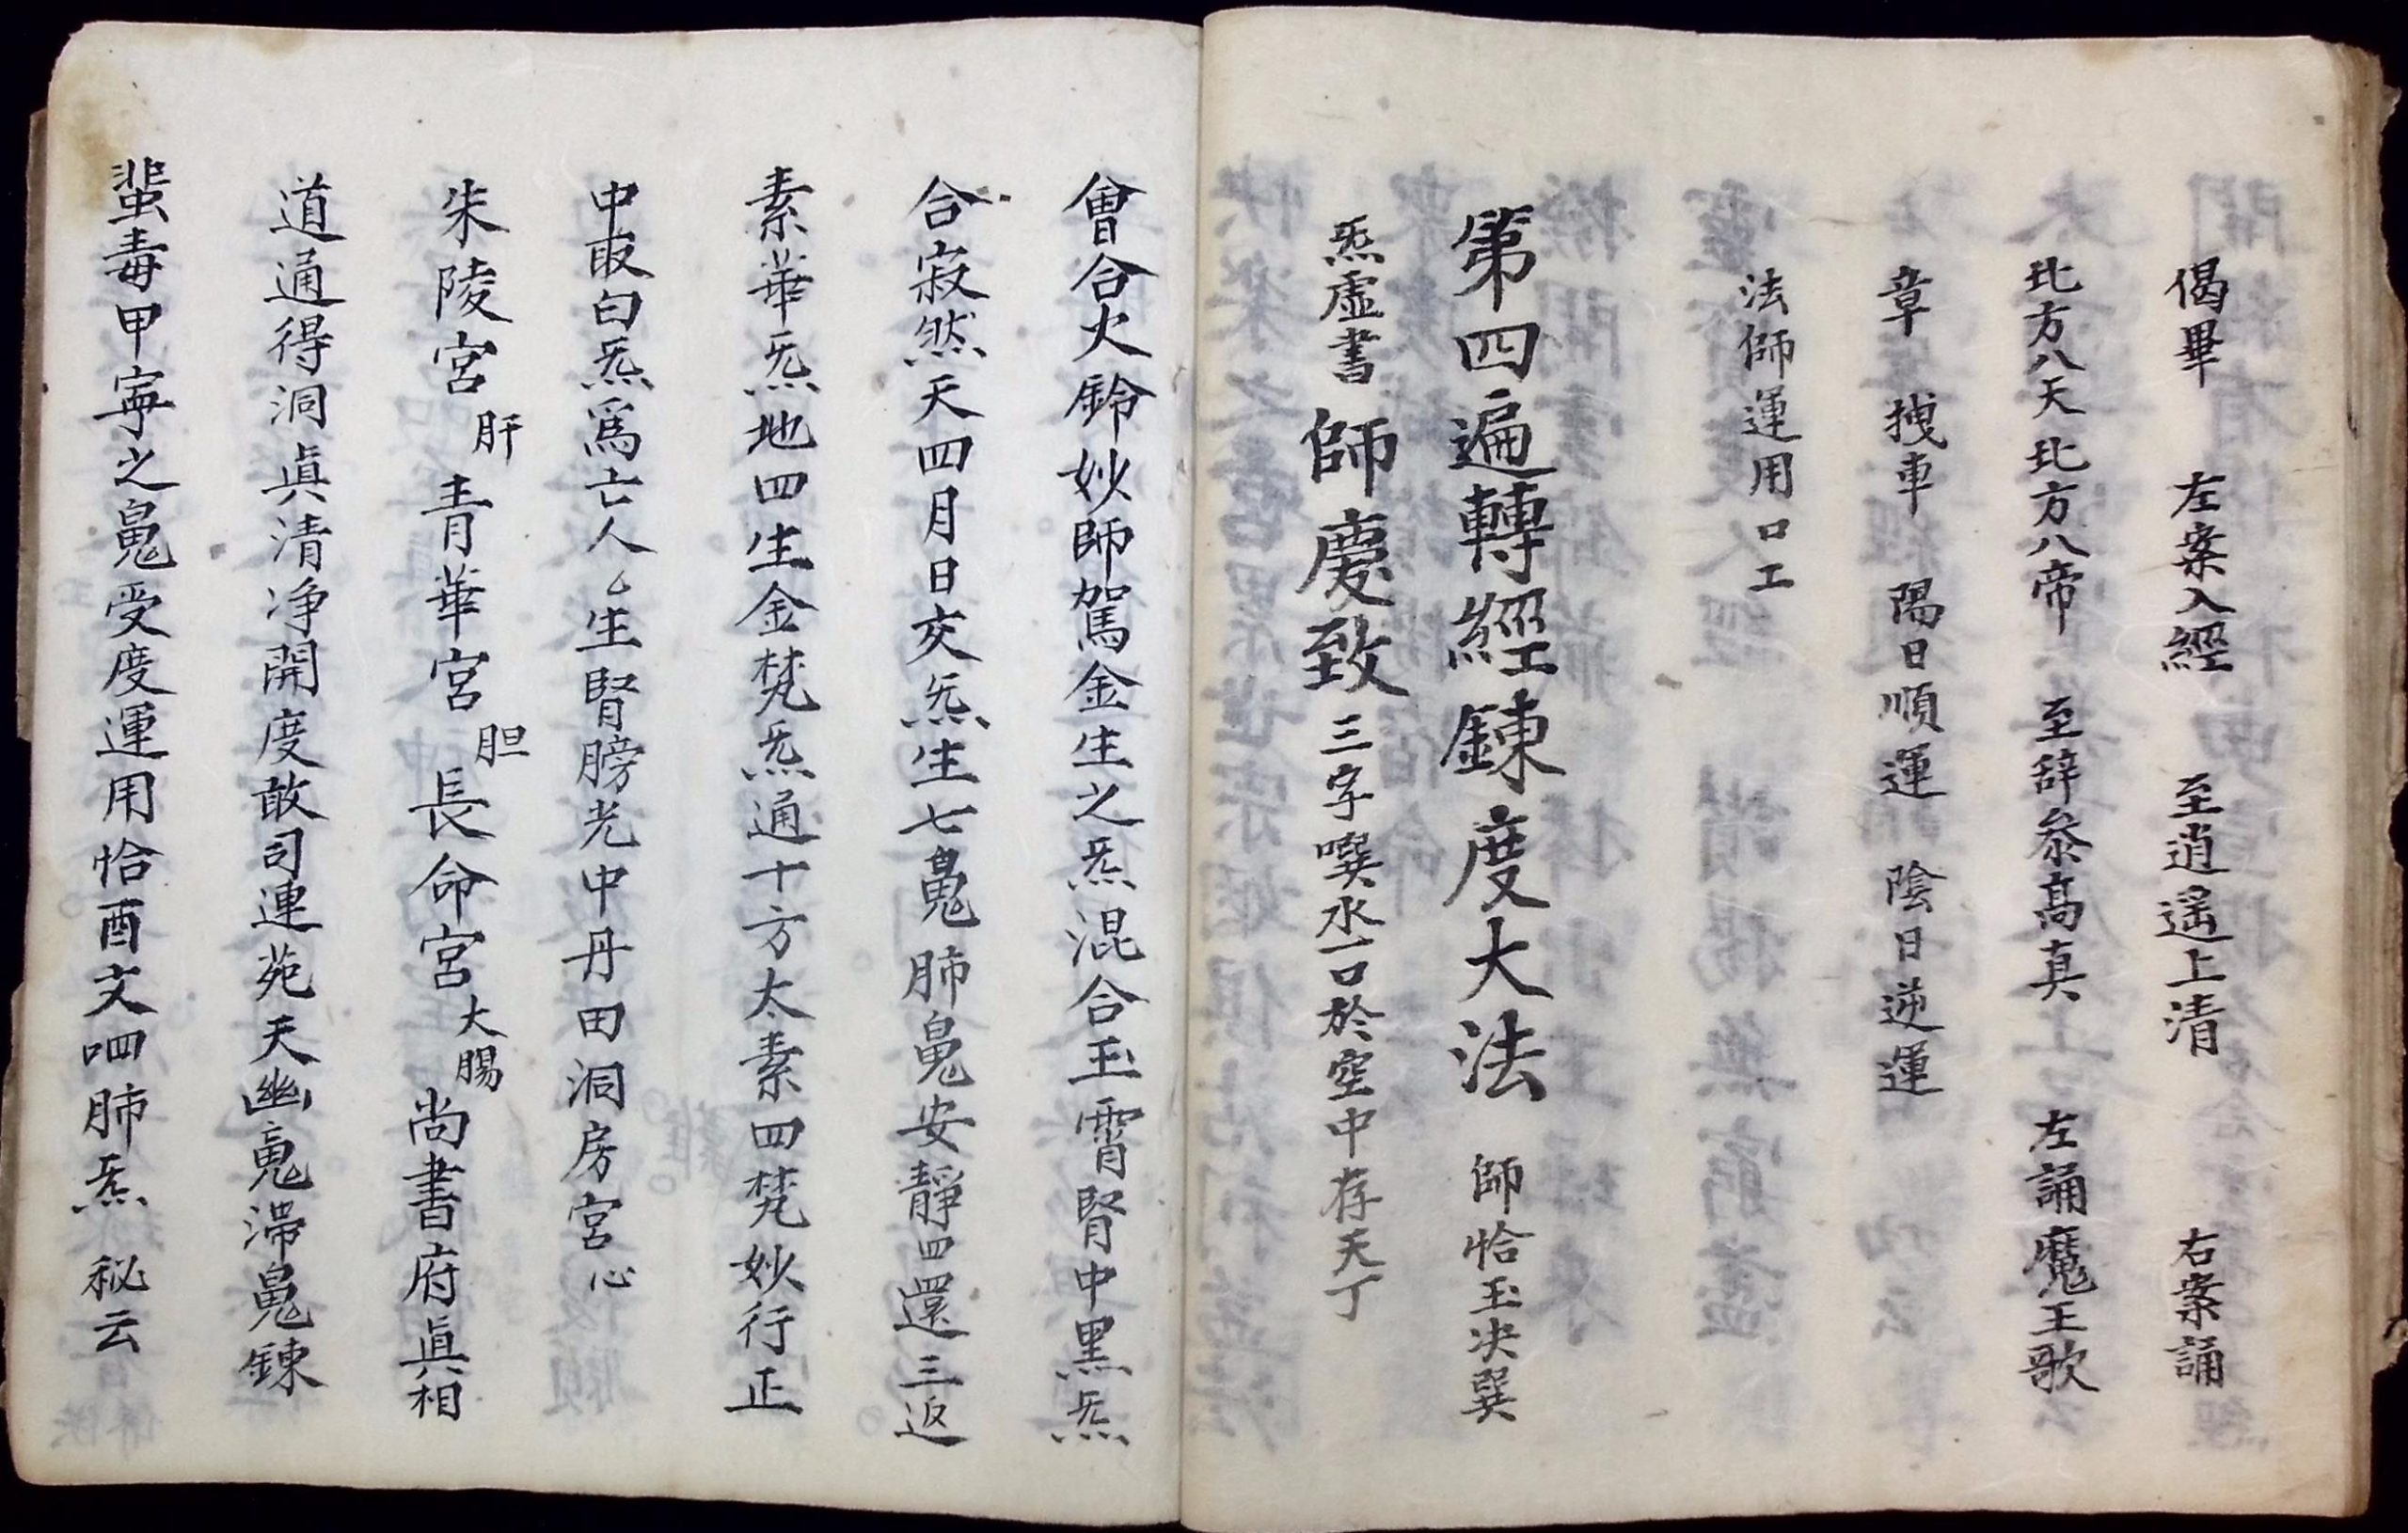 偈畢 左案入經 至逍遙上清 右案誦
北方八天北方八帝 至辞叅髙真 左誦魔王歌
章 拽車 陽日順運 陰日逆運
法師運用口工
第四遍轉經鍊度大法 師恰玉决巽
炁虛書 師慶致 三字噀水一口於空中存天丁
會合火鈴妙師駕金生之炁混合玉霄腎中黑炁
合寂然天四月日交炁生七䰟肺䰟安靜四還三返
素華炁地四生金梵炁通十方太素四梵妙行正
中取白炁爲亡人乙生腎膀光中丹田洞房宮心
朱陵宮 肝 青華宮 胆 長命宮 大腸 尚書府眞相
道通得洞眞清净開度敢司連苑天幽䰟滯䰟鍊
蜚毒甲寧之䰟受度運用恰酉文呬肺炁 秘云